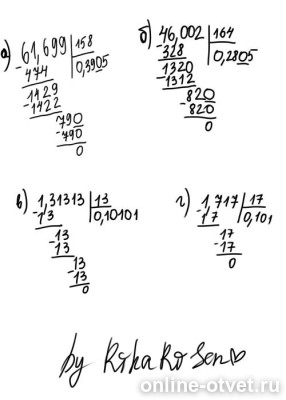 а) 61,699 | 158
-474 | 0,3905
1429
-1422
790
-790
0
б) 46,002 | 164
-328 | 0,2805
1320
-1312
820
-820
0
в) 1,31313 | 13
-13 | 0,10101
-13
13
-13
13
0
г) -1,717 | 17
17 | 0,101
17
-17
0
by RikaRoSen
online-otvet.ru